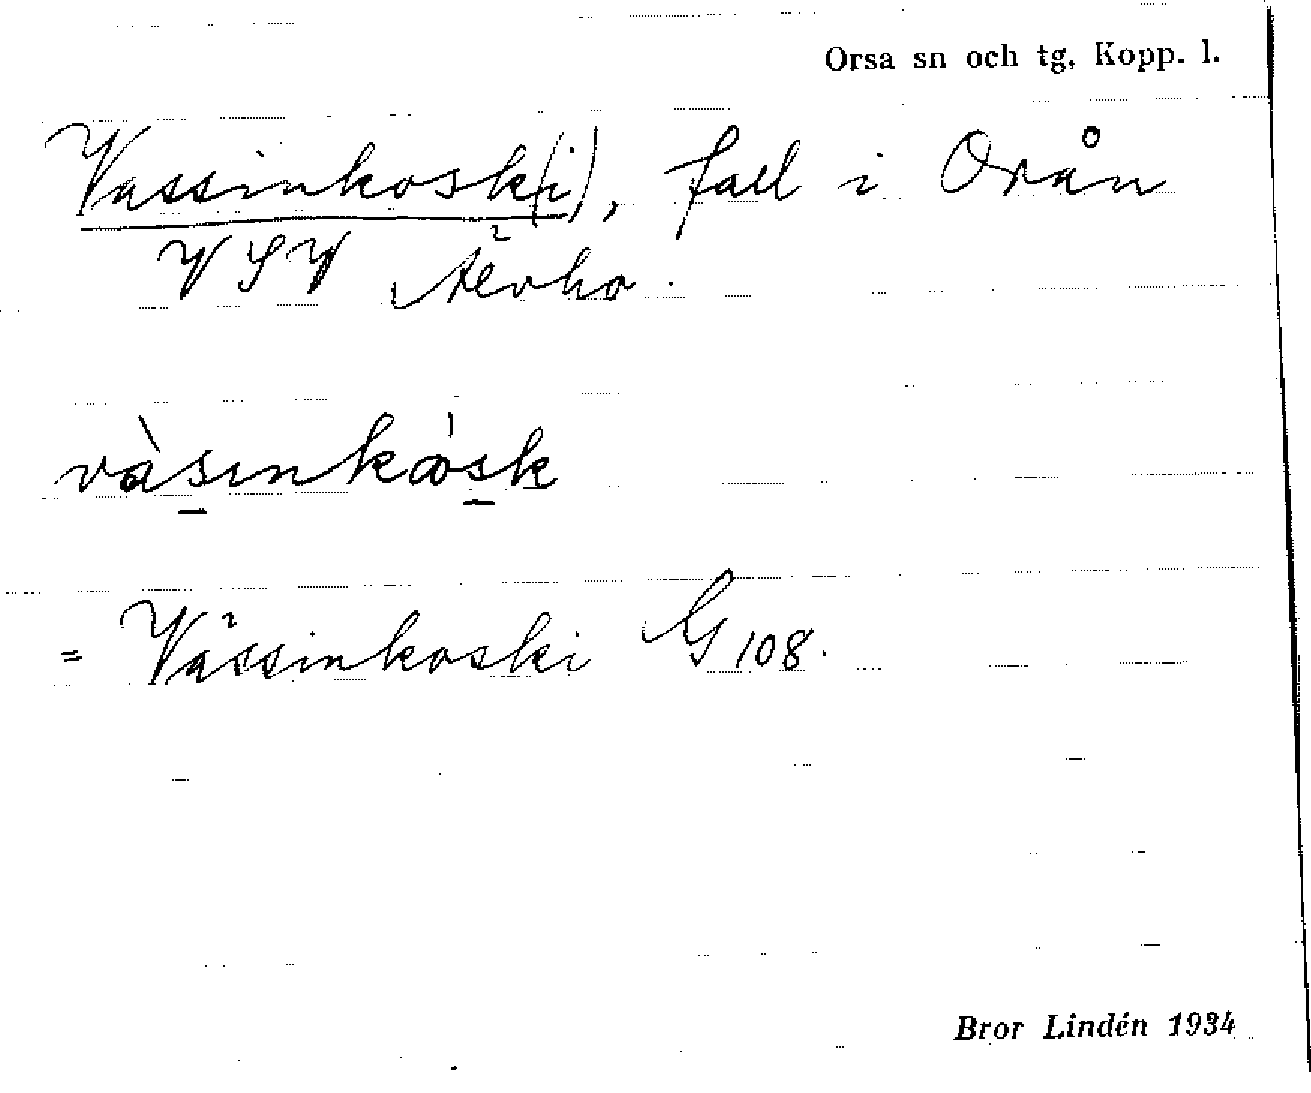 Orsa sn och tg, Kopp. l.
Vassinkosk(i), fall i Orån
VSV
vàsınkåsk
= Vässinkoski G 108.
Bror Lindén 1934